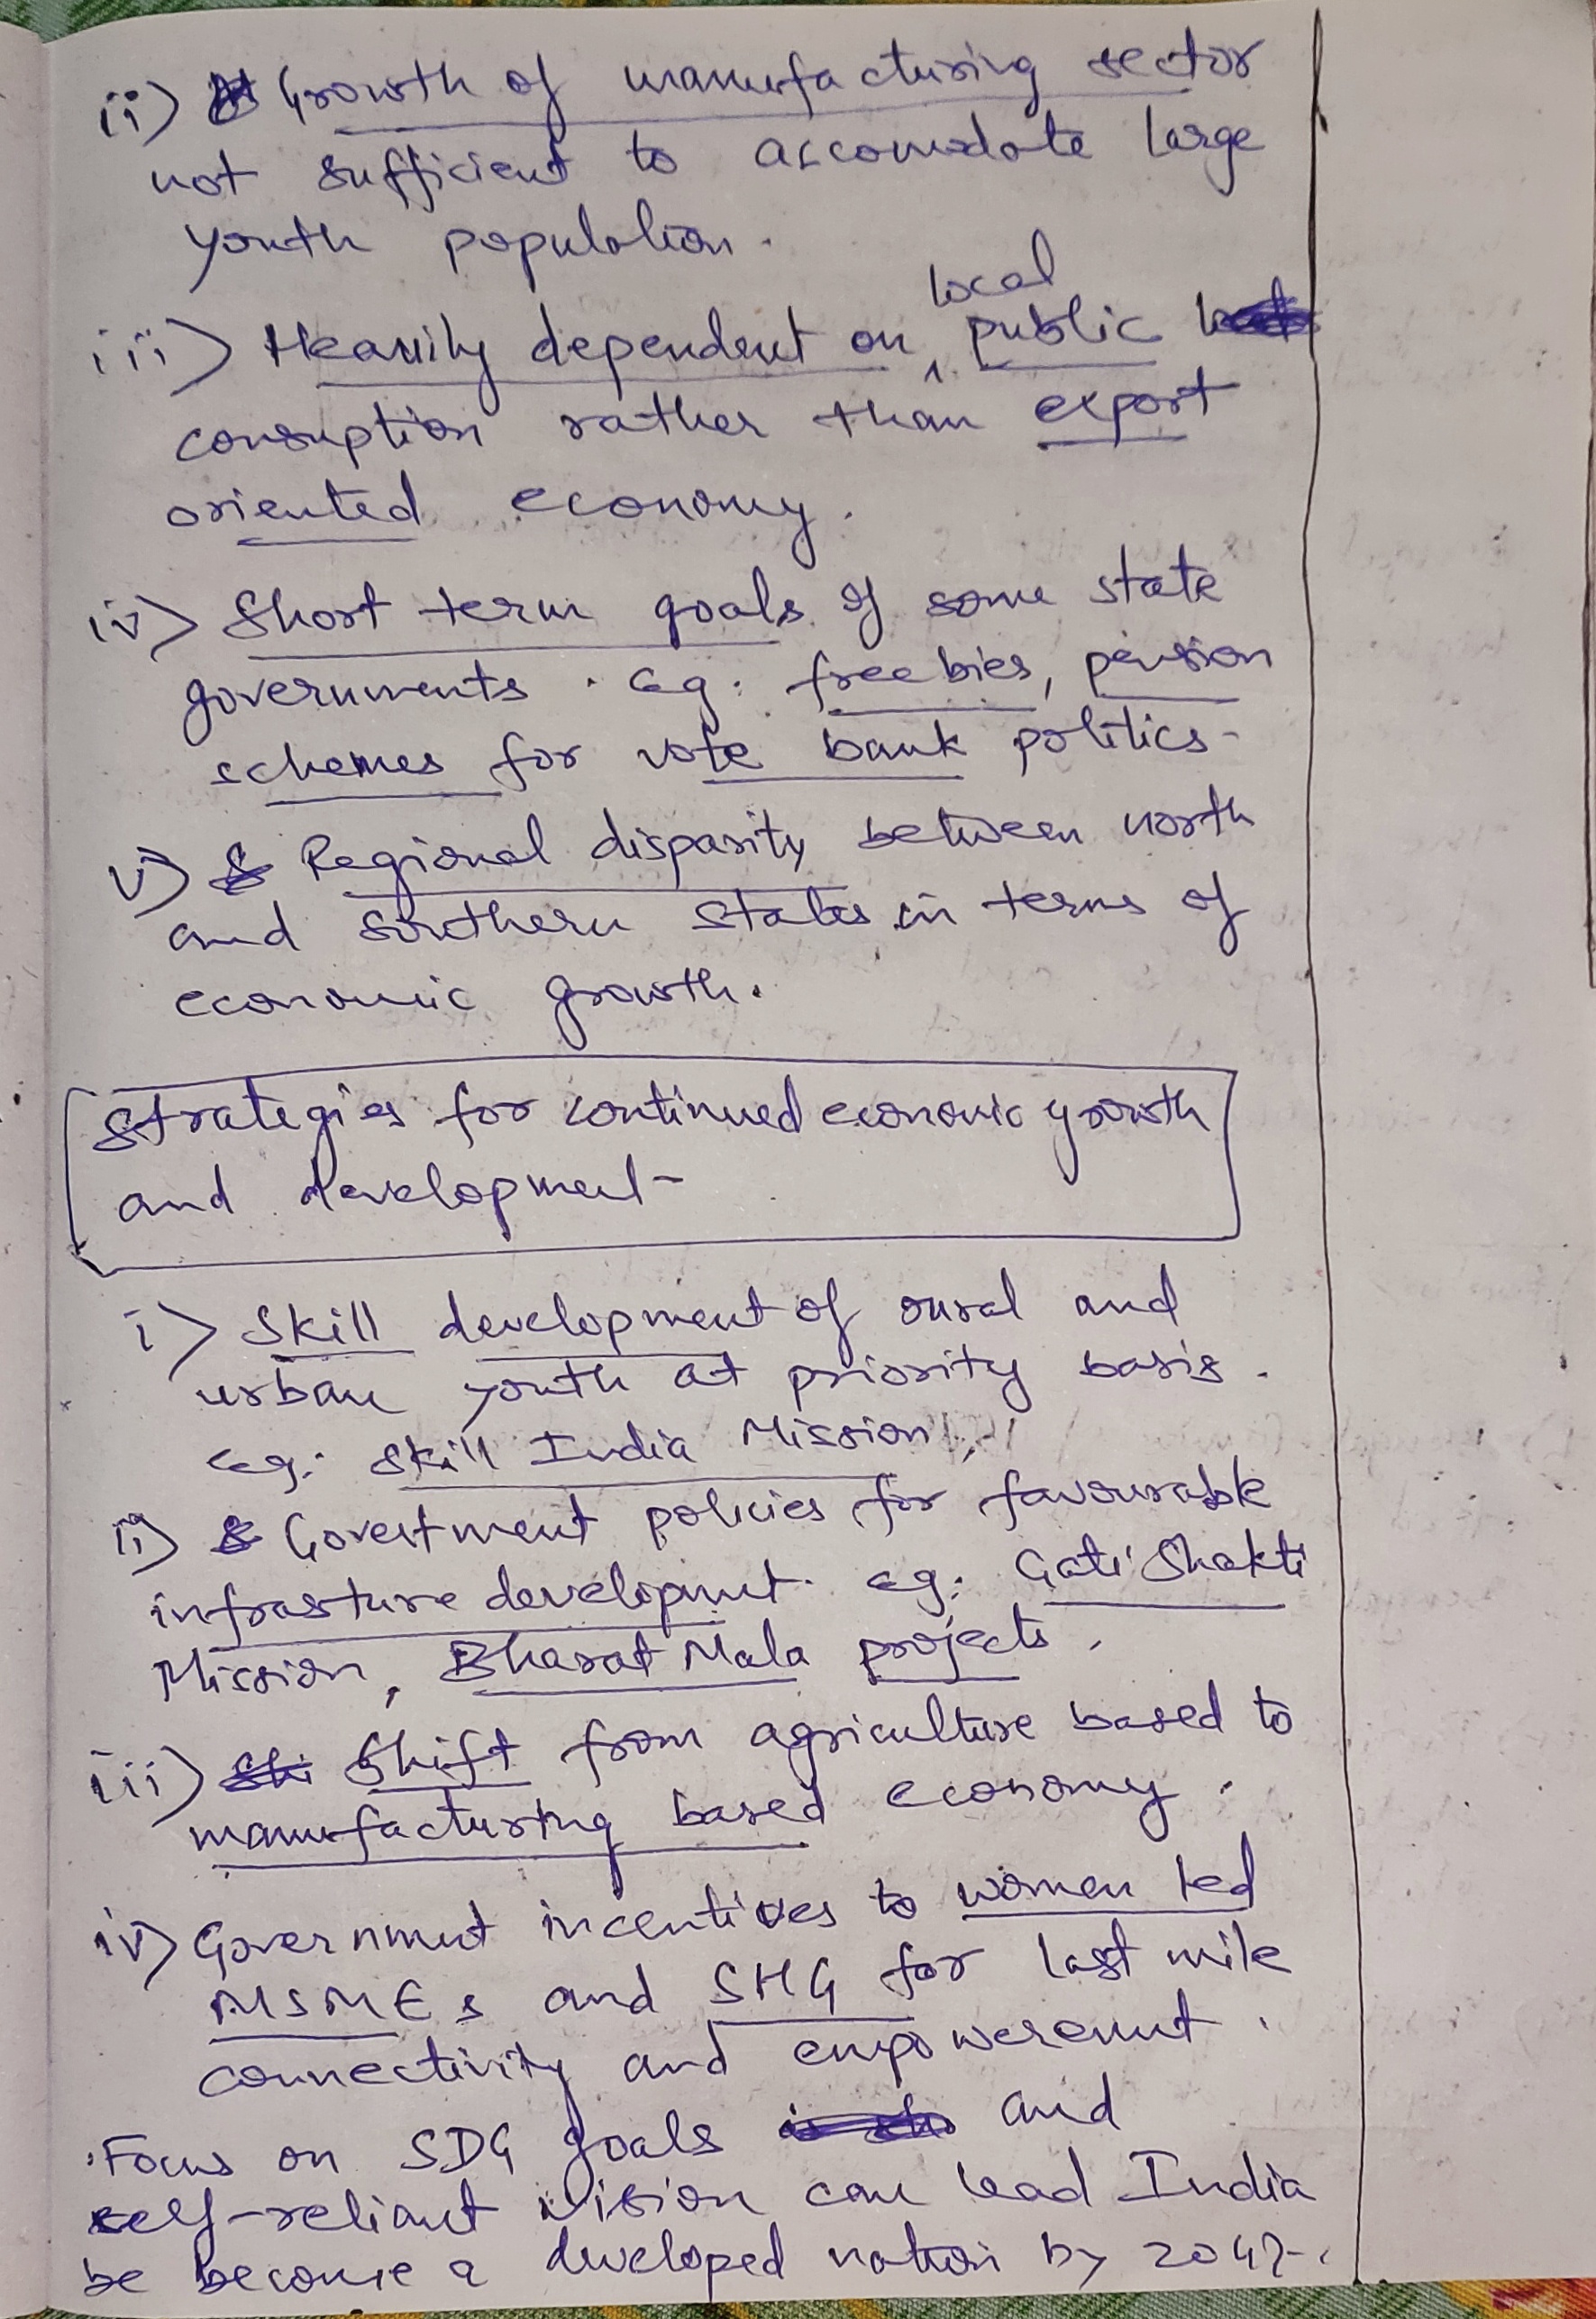 ii) Growth of manufacturing sector
not sufficient to accomodate large
youth population.
iii) Heavily dependent on local public
consuption rather than export
oriented economy.
iv) Short term goals of some state
governments. eg: freebies, pension
schemes for vote bank politics.
v) Regional disparity between north
and southern states in terms of
economic growth.
Strategies for continued economic growth
and development-
i) Skill development of rural and
urban youth at priority basis.
eg: Skill India Mission,
ii) Govertment policies for favourable
infrasture development. eg: Gati Shakti
Mission, Bharat Mala projects.
iii) Shift from agriculture based to
manufacturing based economy.
iv) Government incentives to women led
MSMEs and SHG for last mile
connectivity and empowerement.
.Focus on SDG goals and
self-reliant vision can lead India
be become a developed nation by 2047.